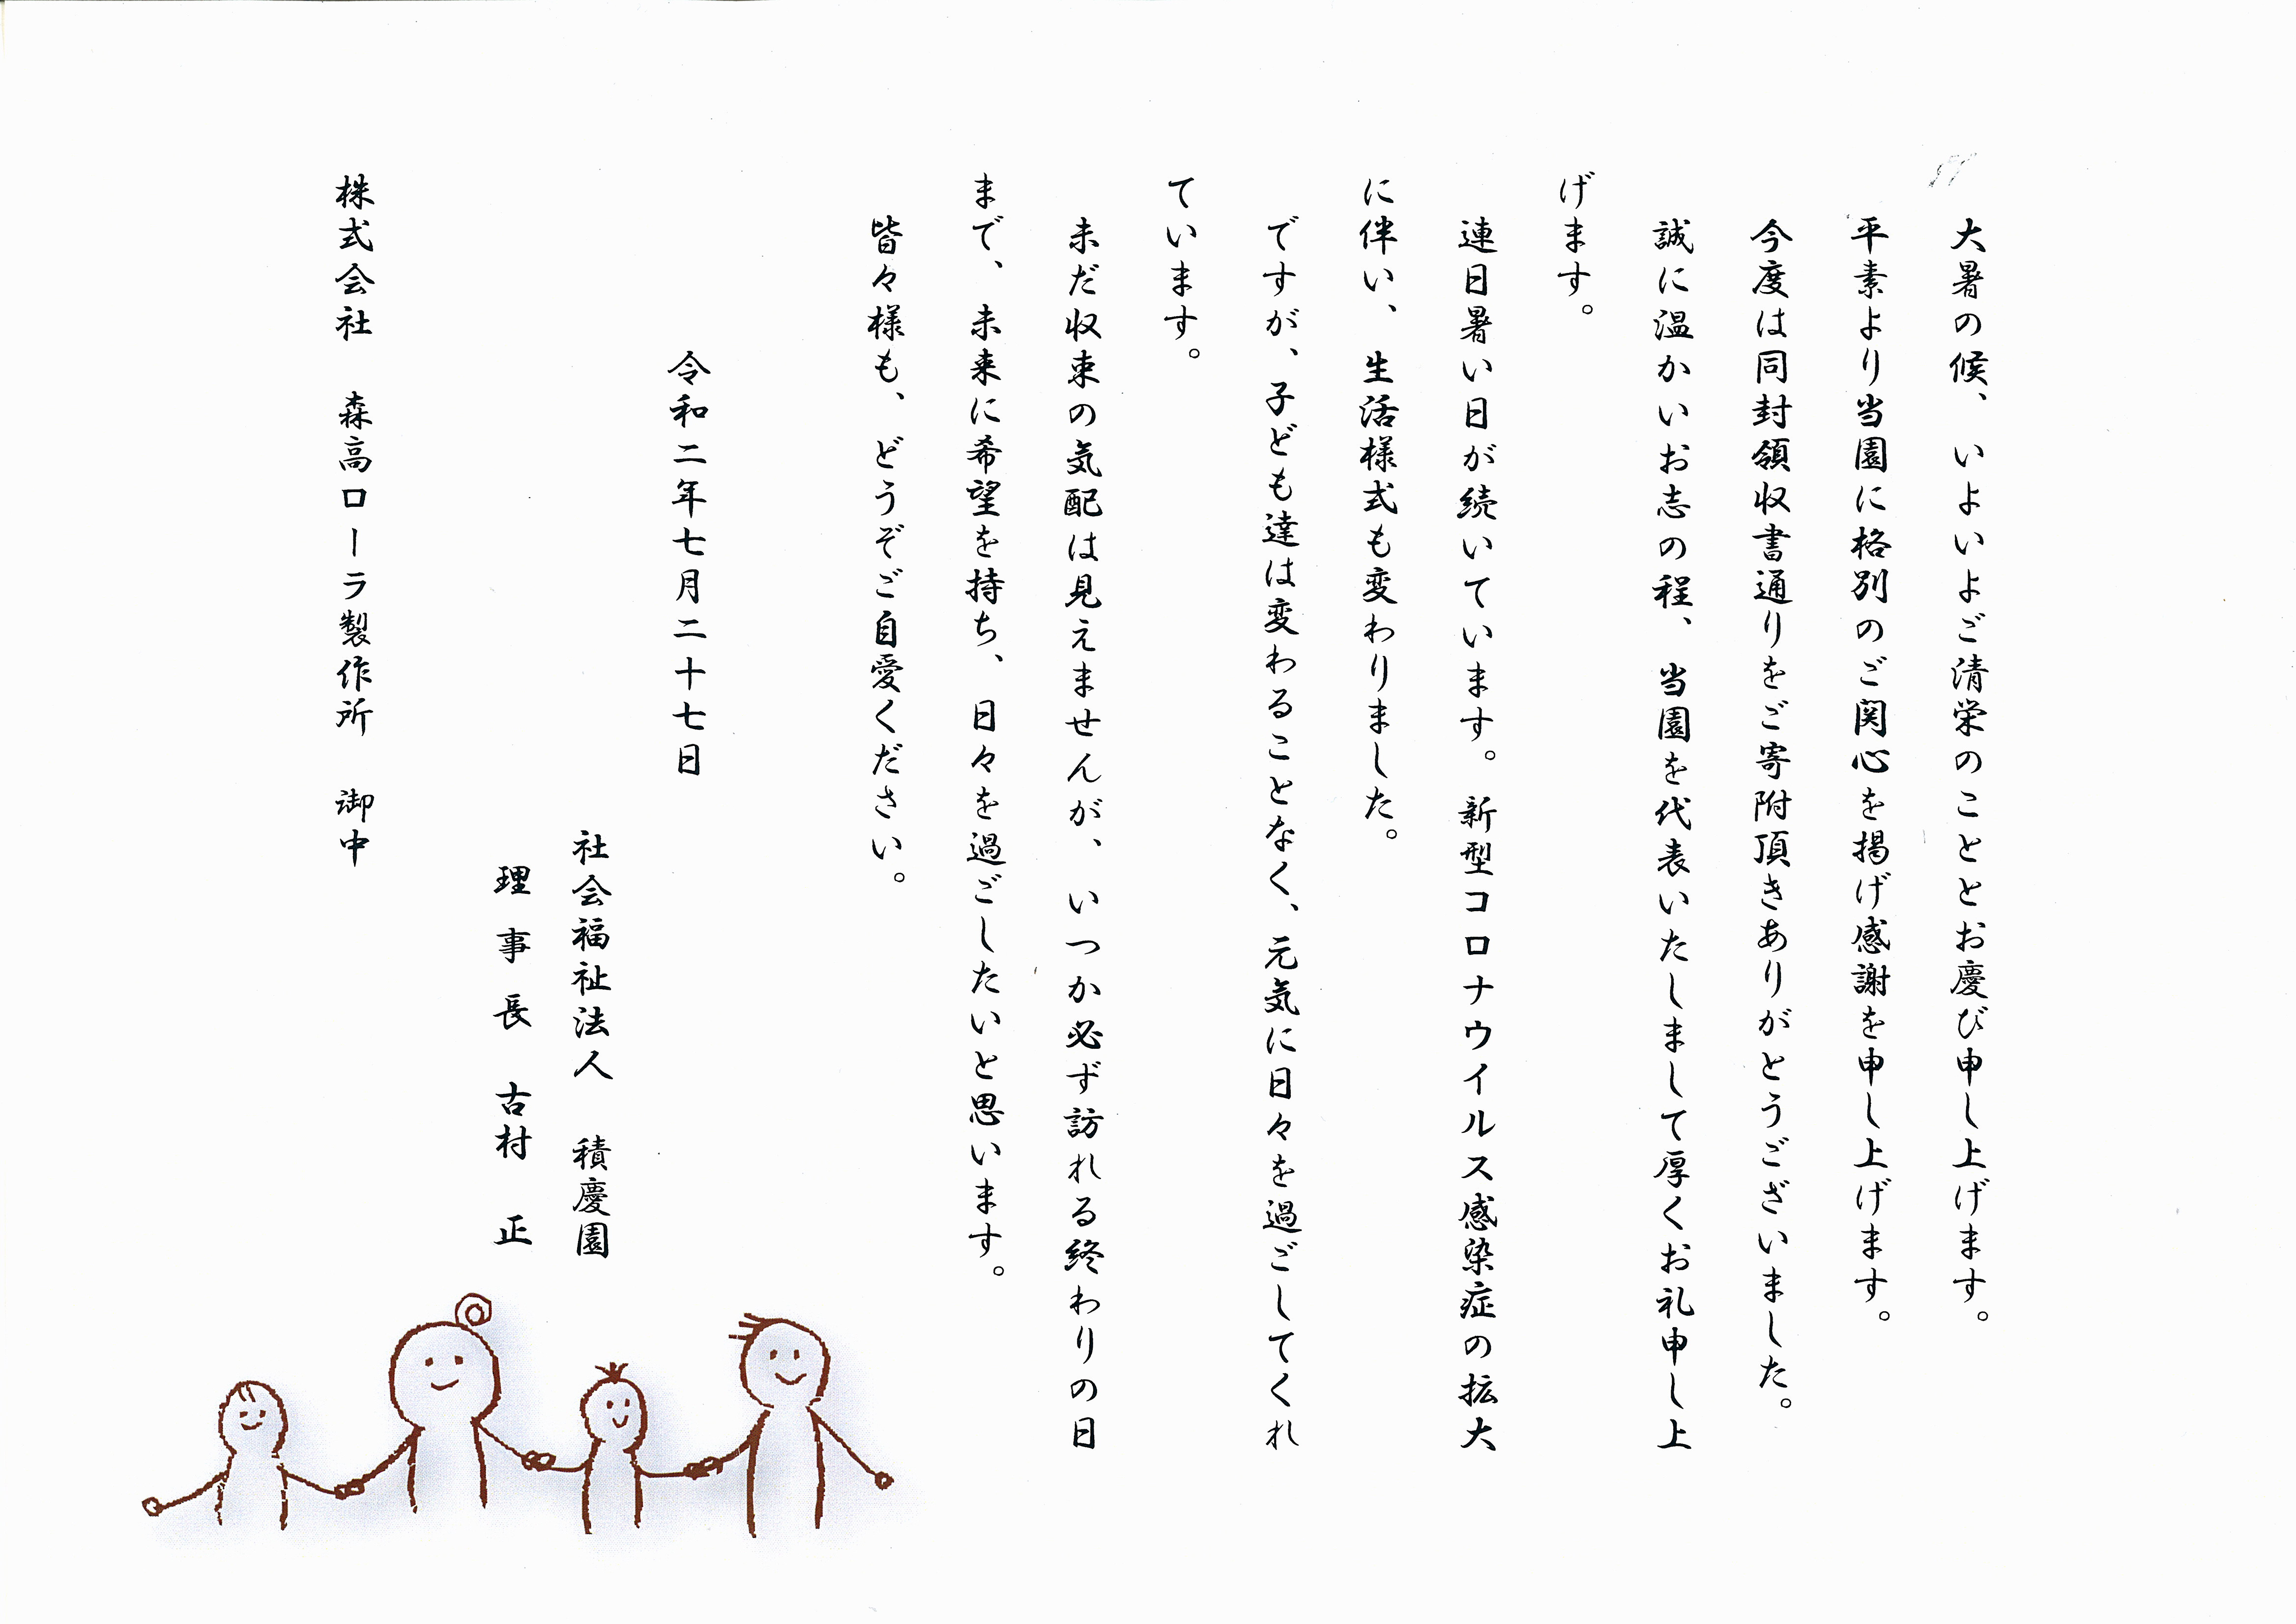 大暑の候、いよいよご清栄のこととお慶び申し上げます。
平素より当園に格別のご関心を掲げ感謝を申し上げます。
今度は同封領収書通りをご寄附頂きありがとうございました。
誠に温かいお志の程、当園を代表いたしまして厚くお礼申し上
げます。
連日暑い日が続いています。新型コロナウイルス感染症の拡大
に伴い、生活様式も変わりました。
ですが、子ども達は変わることなく、元気に日々を過ごしてくれ
ています。
未だ収束の気配は見えませんが、いつか必ず訪れる終わりの日
まで、未来に希望を持ち、日々を過ごしたいと思います。
皆々様も、どうぞご自愛ください。
令和二年七月二十七日
社会福祉法人 積慶園
理事長 古村 正
株式会社 森高ローラ製作所 御中